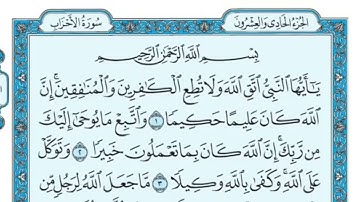 الجزء الحادي والعشرون
سورة الأحزاب
بِسْمِ اللَّهِ الرَّحْمَٰنِ الرَّحِيمِ
يَٰٓأَيُّهَا ٱلنَّبِيُّ ٱتَّقِ ٱللَّهَ وَلَا تُطِعِ ٱلْكَٰفِرِينَ وَٱلْمُنَٰفِقِينَ ۗ إِنَّ
ٱللَّهَ كَانَ عَلِيمًا حَكِيمًا ١ وَٱتَّبِعْ مَا يُوحَىٰٓ إِلَيْكَ
مِن رَّبِّكَ ۚ إِنَّ ٱللَّهَ كَانَ بِمَا تَعْمَلُونَ خَبِيرًا ٢ وَتَوَكَّلْ
عَلَى ٱللَّهِ ۚ وَكَفَىٰ بِٱللَّهِ وَكِيلًا ٣ مَّا جَعَلَ ٱللَّهُ لِرَجُلٍ مِّن